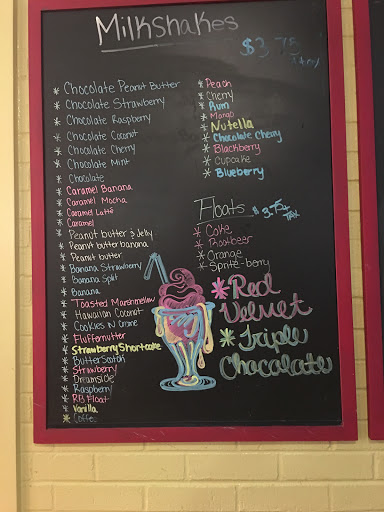 Milkshakes
$3.75
+ tax
* Chocolate Peanut Butter
* Chocolate Strawberry
* Chocolate Raspberry
* Chocolate Coconut
* Chocolate Cherry
* Chocolate Mint
* Chocolate
* Caramel Banana
* Caramel Mocha
* Caramel Latté
* Caramel
* Peanut butter & Jelly
* Peanut butter banana
* Peanut butter
* Banana Strawberry
* Banana Split
* Banana
* Toasted Marshmellow
* Hawaiian Coconut
* Cookies N Creme
* Fluffernutter
* Strawberry Shortcake
* Butterscotch
* Strawberry
* Dreamside
* Raspberry
* RB Float
* Vanilla
* Coffe
* Peach
* Cherry
* Rum
* Mango
* Nutella
* Chocolate Cherry
* Blackberry
* Cupcake
* Blueberry
Floats $3.75
+ tax
* Coke
* Rootbeer
* Orange
* Sprite-berry
* Red
Velvet
* Triple
Chocolate